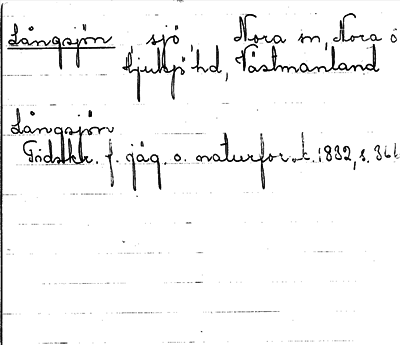 Långsjön sjö, Nora sn, Nora o
Hjulsjö hd, Västmanland
Långsjön
Tidskr. f. jäg. o. naturforsk. 1832, s. 366